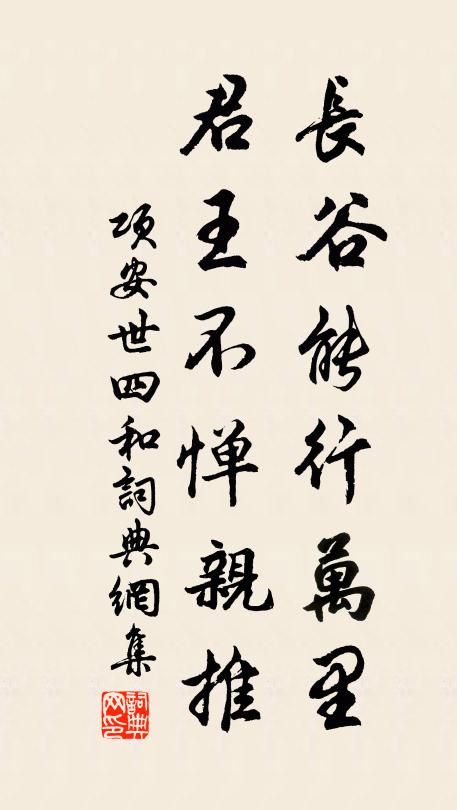 長谷能行萬里
君王不惮親推
項安世四和詞典網集
詞典網印